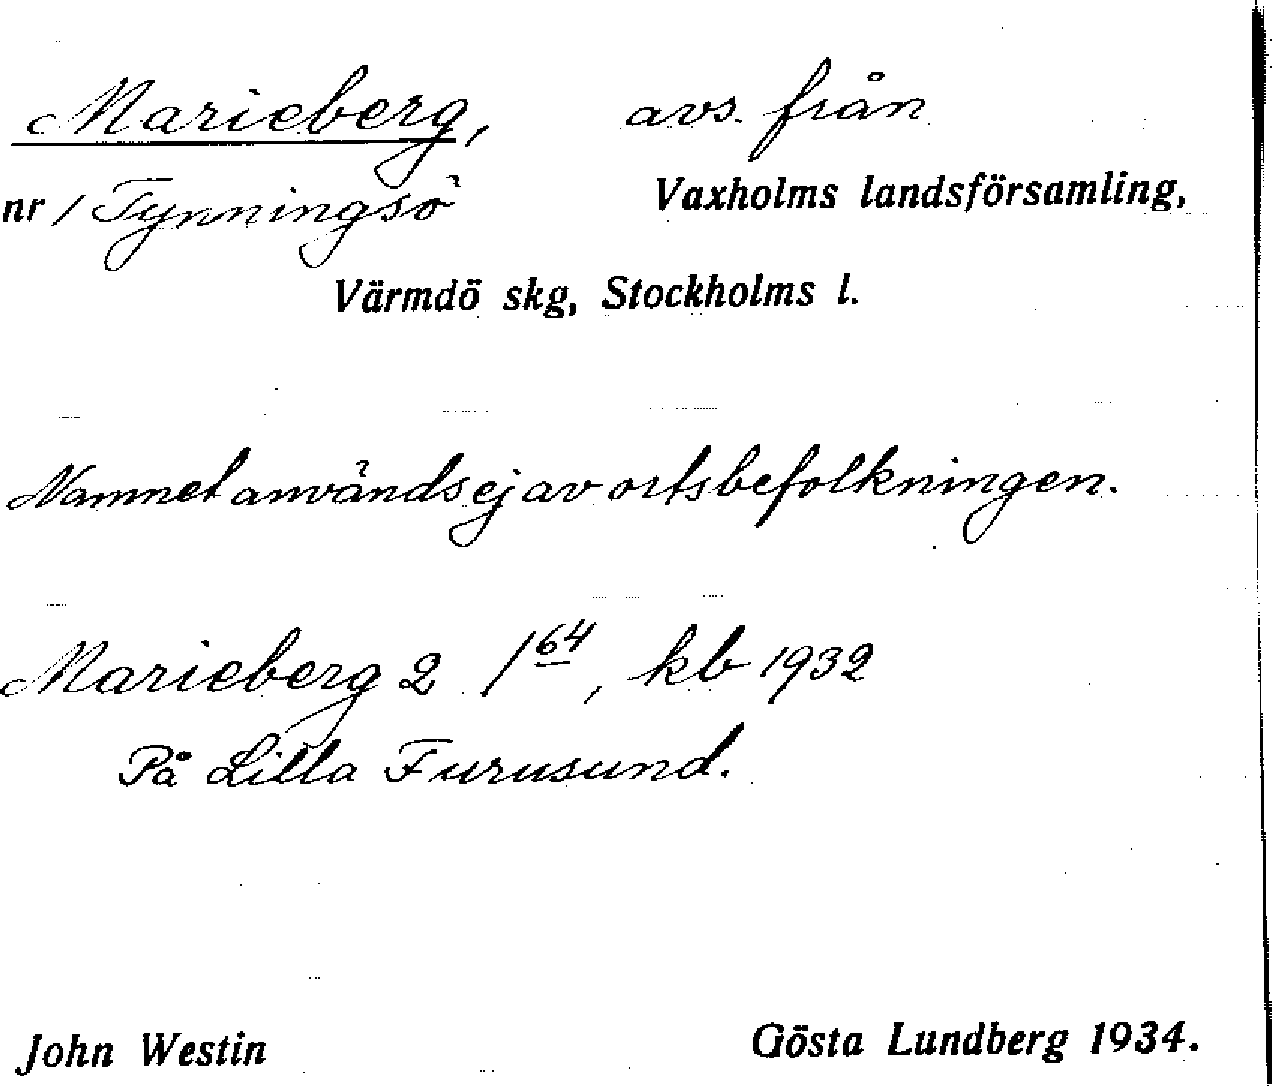 Marieberg, avs. från
nr 1 Tynningsö Vaxholms landsförsamling,
Värmdö skg, Stockholms l.
Namnet användes ej av ortsbefolkningen.
Marieberg 2 / 64, kb 1932
På Lilla Furusund.
John Westin Gösta Lundberg 1934.